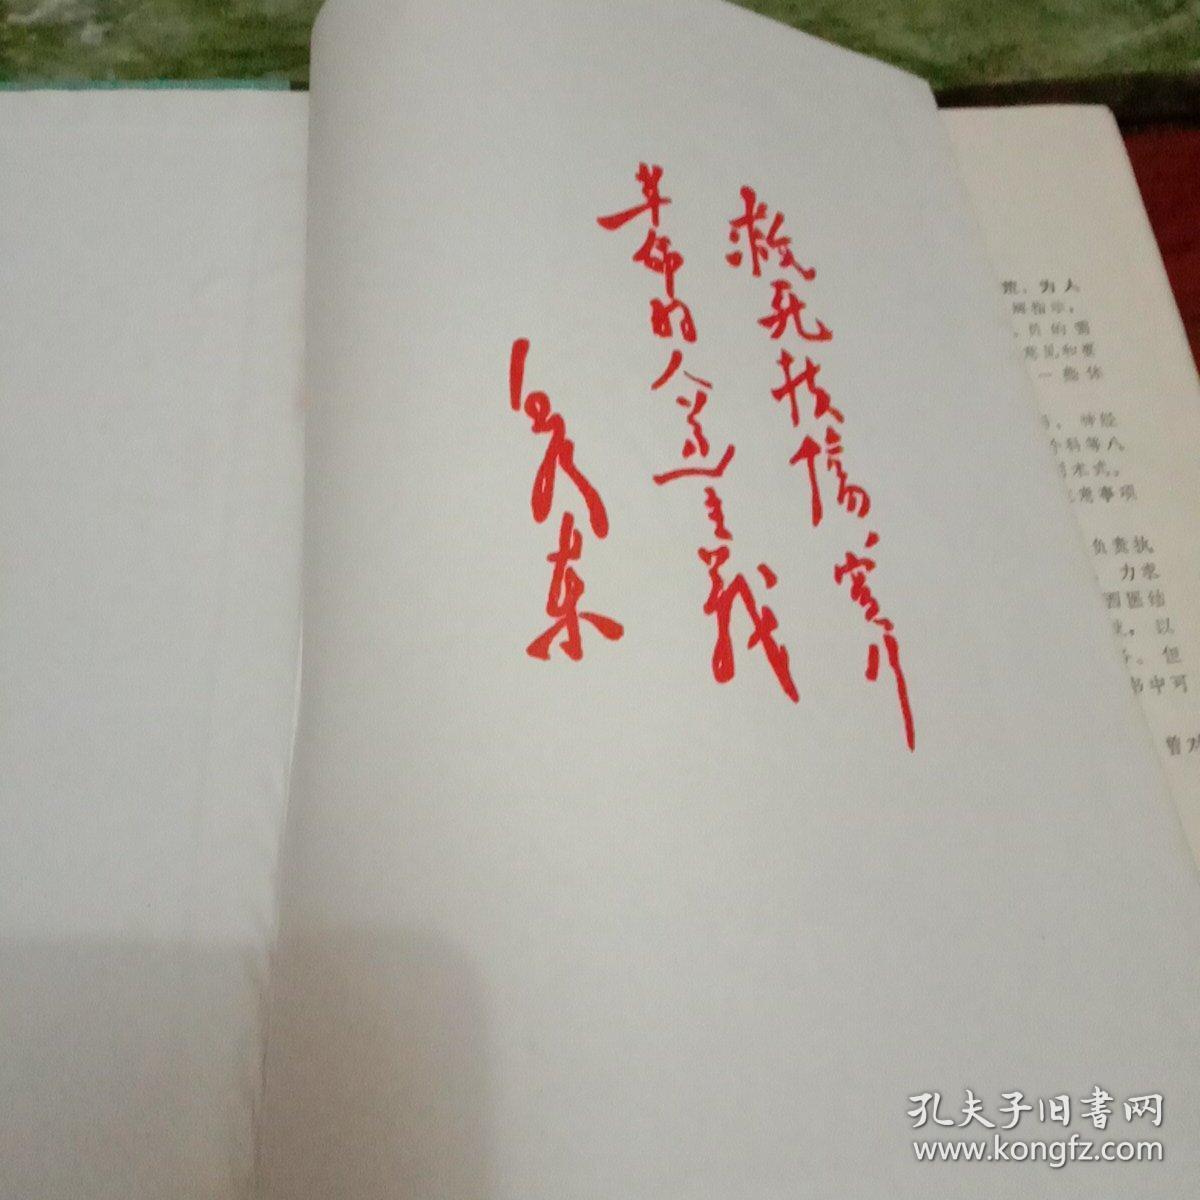 救死扶傷，實行
革命的人道主義
毛澤东
策，为人
阔指示，
员的需
意见和要
一些体
神经
外科等八
术式，
意事项
负责执
力求
西医结
以
但
书中可
曾对
孔夫子旧書网
www.kongfz.com